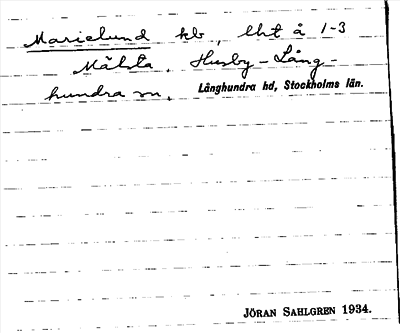 Marielund kb, lht å 1-3
Målsta, Husby-Lång-
hundra sn,
Långhundra hd, Stockholms län.
JÖRAN SAHLGREN 1934.